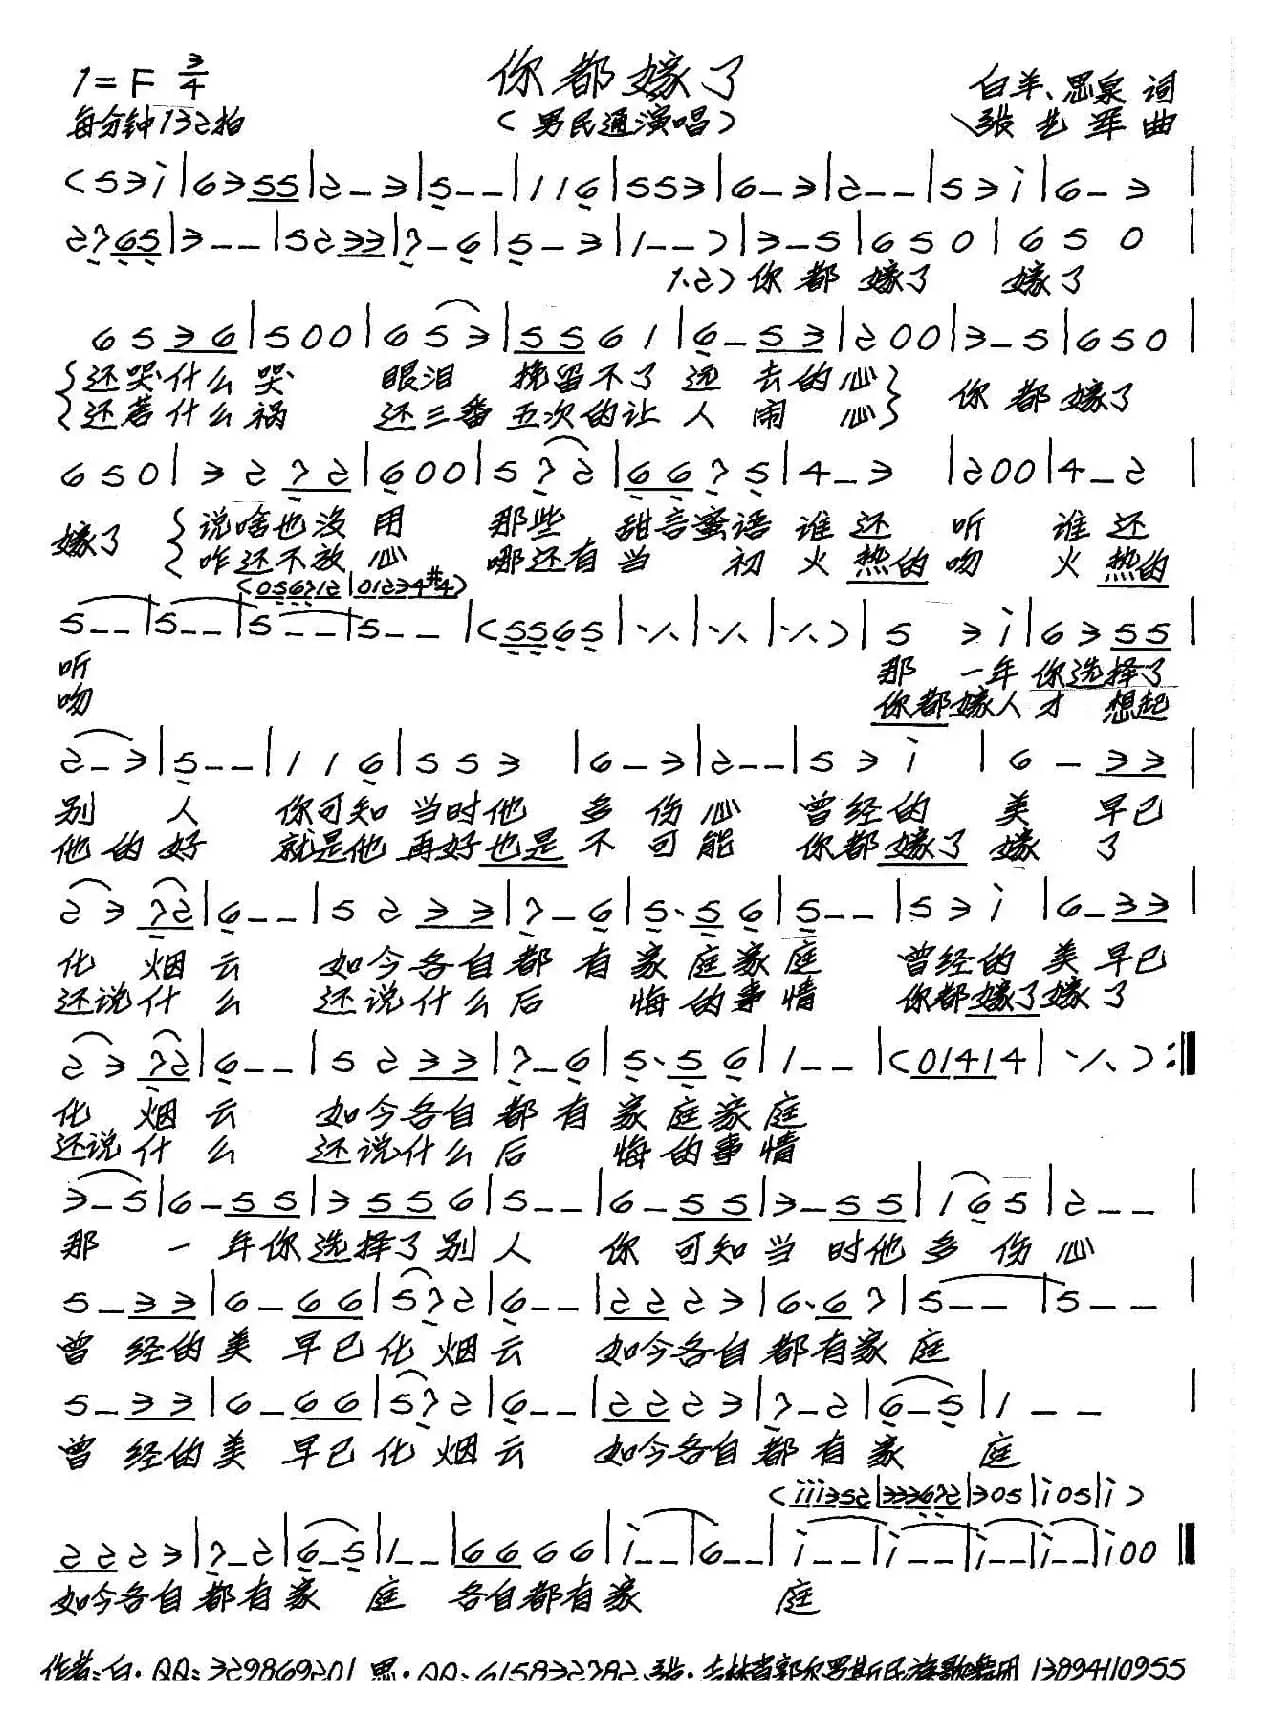 1=F 3/4 你都嫁了 白羊、思泉 词
每分钟132拍 (男民通演唱) 张艺军 曲
(5 3 i | 6 3 5 5 | 2 - 3 | 5 - - | 1 1 6 | 5 5 3 | 6 - 3 | 2 - - | 5 3 i | 6 - 3 |
2 7 6 5 | 3 - - | 5 2 3 3 | 7 - 6 | 5 - 3 | 1 - - ) | 3 - 5 | 6 5 0 | 6 5 0 |
1.2) 你都嫁了 嫁了
6 5 3 6 | 5 0 0 | 6 5 3 | 5 5 6 1 | 6 - 5 3 | 2 0 0 | 3 - 5 | 6 5 0 |
还哭什么哭 眼泪 挽留不了远去的心 你都嫁了
还惹什么祸 还三番五次的让人闹心
6 5 0 | 3 2 7 2 | 6 0 0 | 5 7 2 | 6 6 7 5 | 4 - 3 | 2 0 0 | 4 - 2
嫁了 说啥也没用 那些 甜言蜜语谁还听 谁还
咋还不放心 哪还有当初火热的吻 火热的
(0 5 6 7 1 2 | 0 1 2 3 4 #4)
5 - - | 5 - - | 5 - - | 5 - - | (5 5 6 5 | ·/· | ·/· | ·/· ) | 5 3 i | 6 3 5 5 |
听 那一年你选择了
吻 你都嫁人才想起
2 - 3 | 5 - - | 1 1 6 | 5 5 3 | 6 - 3 | 2 - - | 5 3 i | 6 - 3 3 |
别人 你可知当时他多伤心 曾经的美早已
他的好 就是他再好也是不可能 你都嫁了嫁了
2 3 7 2 | 6 - - | 5 2 3 3 | 7 - 6 | 5· 5 6 | 5 - - | 5 3 i | 6 - 3 3 |
化烟云 如今各自都有家庭家庭 曾经的美早已
还说什么 还说什么后悔的事情 你都嫁了嫁了
2 3 7 2 | 6 - - | 5 2 3 3 | 7 - 6 | 5· 5 6 | 1 - - | (0 1 4 1 4 | ·/· ) :||
化烟云 如今各自都有家庭家庭
还说什么 还说什么后悔的事情
3 - 5 | 6 - 5 5 | 3 5 5 6 | 5 - - | 6 - 5 5 | 3 - 5 5 | 1 6 5 | 2 - - |
那一年你选择了别人 你可知当时他多伤心
5 - 3 3 | 6 - 6 6 | 5 7 2 | 6 - - | 2 2 2 3 | 6· 6 7 | 5 - - | 5 - - |
曾经的美早已化烟云 如今各自都有家庭
5 - 3 3 | 6 - 6 6 | 5 7 2 | 6 - - | 2 2 2 3 | 7 - 2 | 6 - 5 | 1 - - |
曾经的美早已化烟云 如今各自都有家庭
(i i i 3 5 2 | 3 3 3 6 7 2 | 3 0 5 | i 0 5 | i )
2 2 2 3 | 7 - 2 | 6 - 5 | 1 - - | 6 6 6 6 | i - - | 6 - - | i - - | i - - | i - - | i - - | i 0 0 ||
如今各自都有家庭 各自都有家庭
作者:白·QQ:329869201 思·QQ:615832282 张·吉林省郭尔罗斯民族歌舞团 13894110955